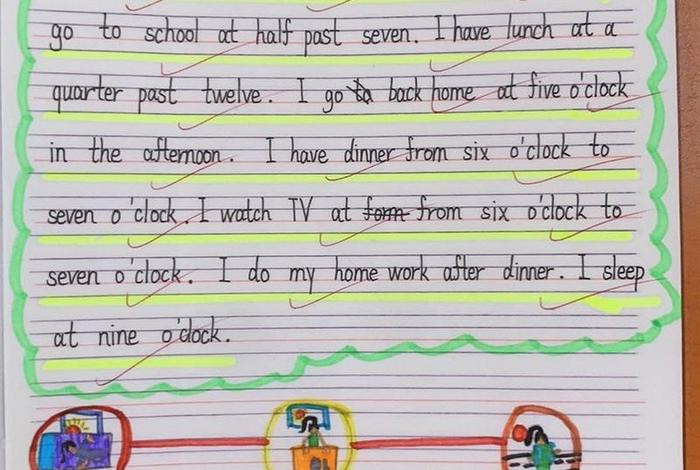 go to school at half past seven. I have lunch at a
quarter past twelve. I go to back home at five o'clock
in the afternoon. I have dinner from six o'clock to
seven o'clock. I watch TV at form from six o'clock to
seven o'clock. I do my home work after dinner. I sleep
at nine o'clock.